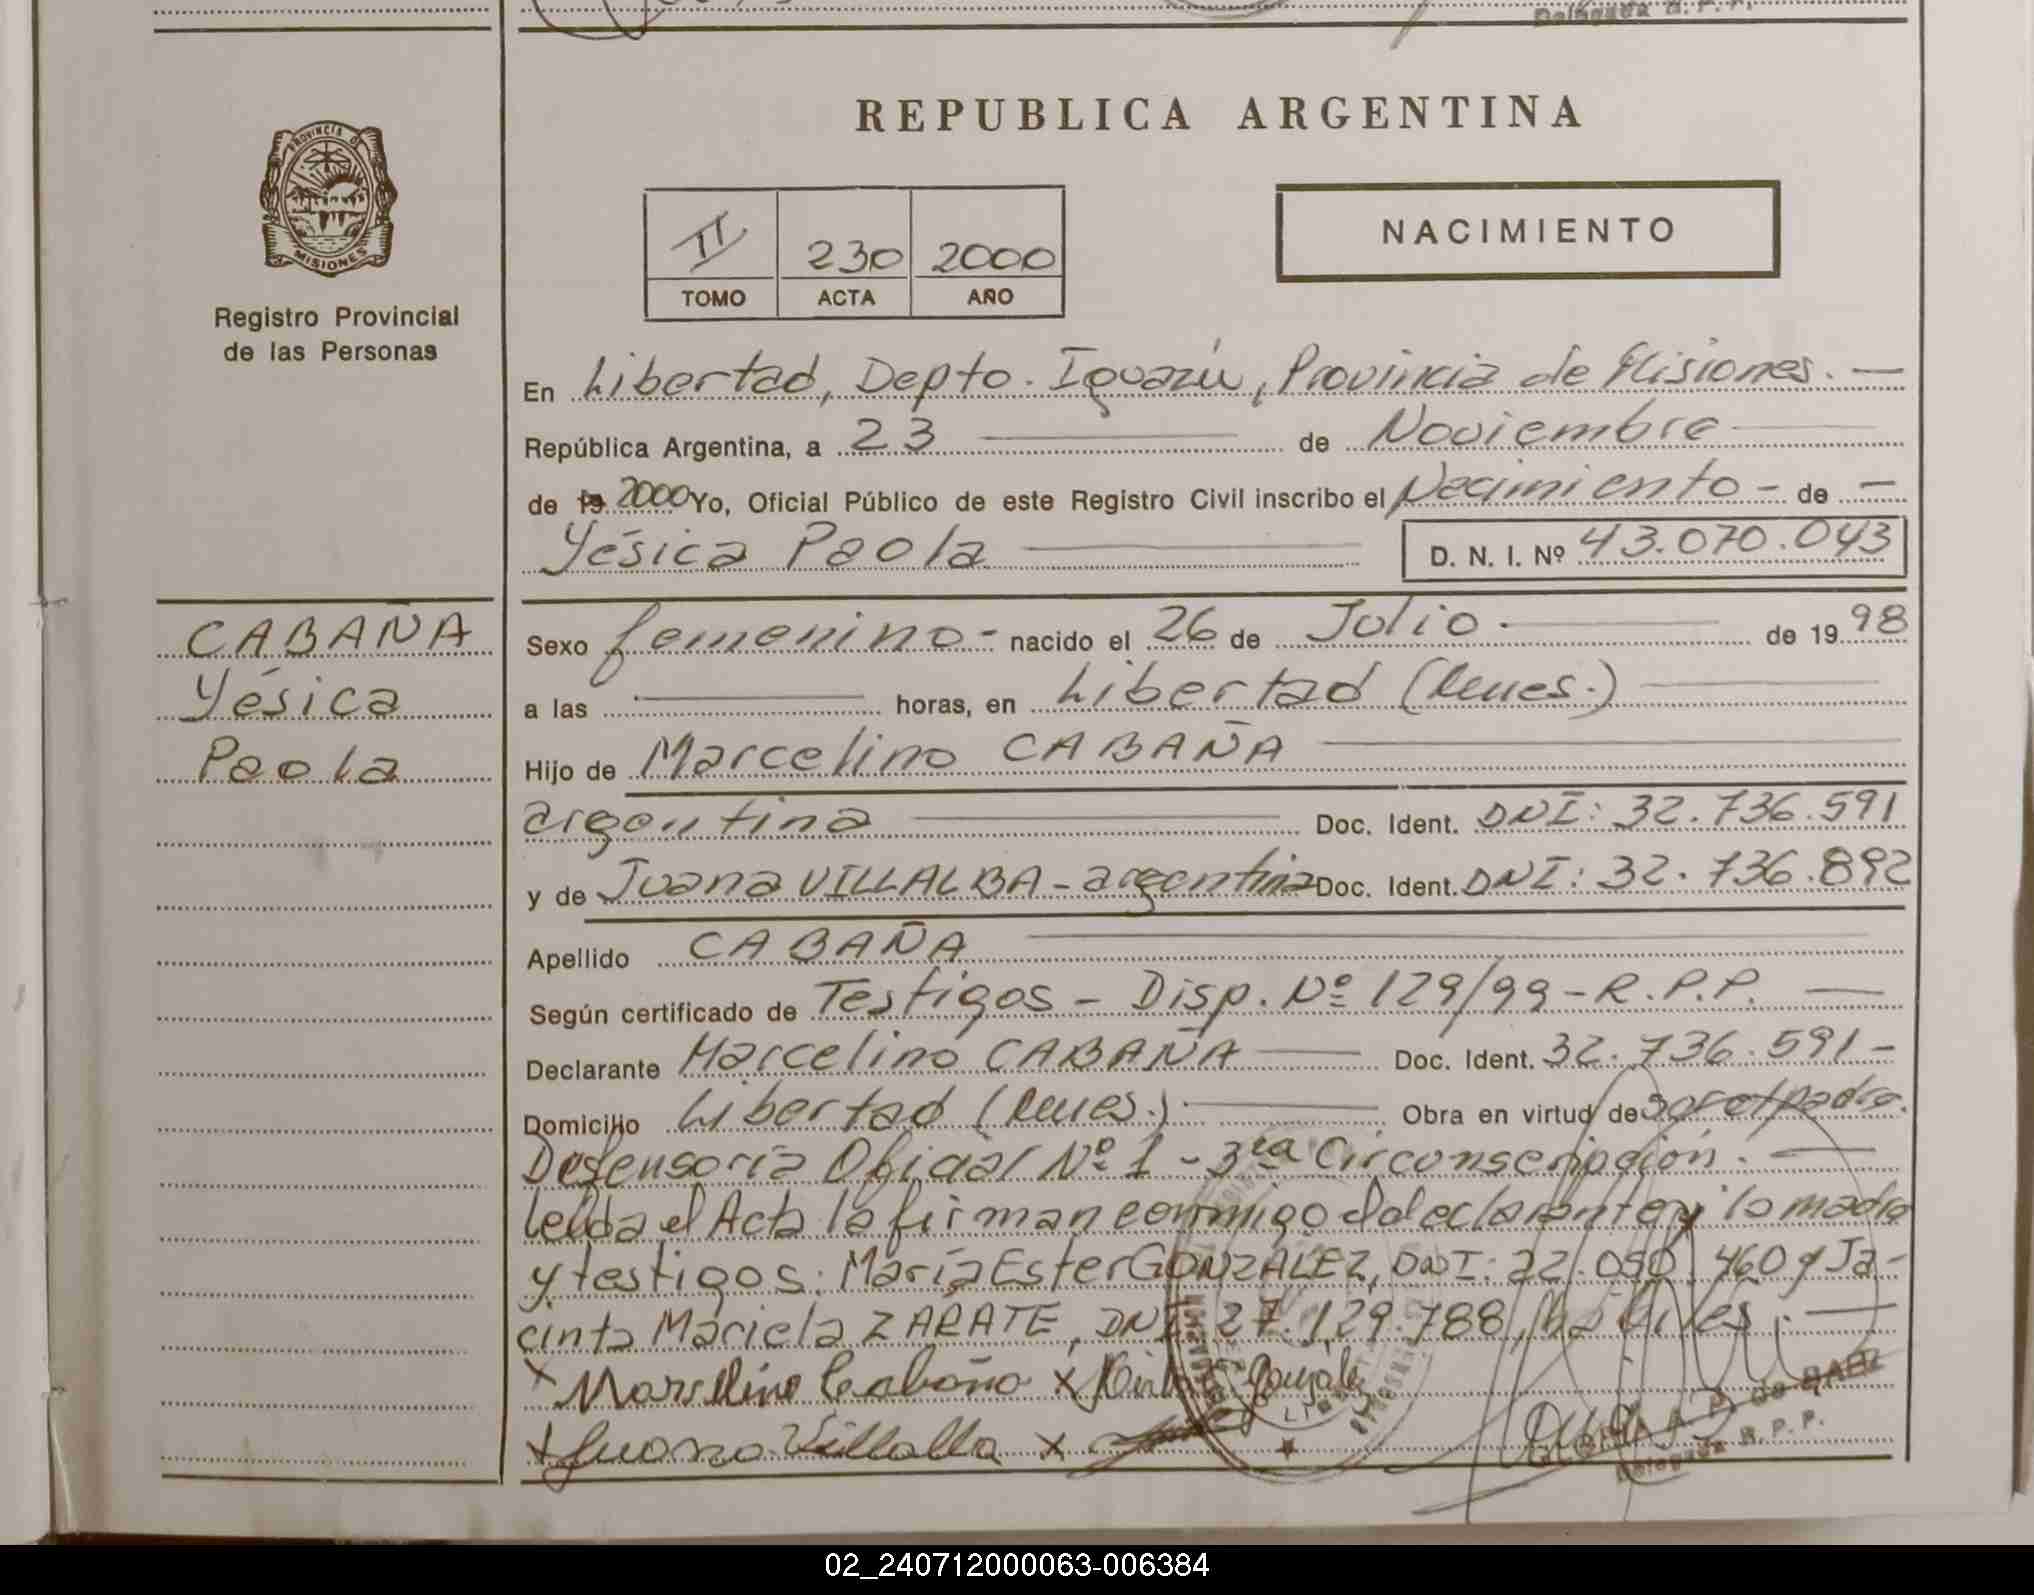 Delegada R. P. P.
REPUBLICA ARGENTINA
PROVINCIA DE
MISIONES
Registro Provincial
de las Personas
II 230 2000
TOMO ACTA AÑO
NACIMIENTO
En Libertad, Depto. Iguazú, Provincia de Misiones. —
República Argentina, a 23 — de Noviembre —
de 19 2000 Yo, Oficial Público de este Registro Civil inscribo el Nacimiento - de —
Yésica Paola —
D. N. I. Nº 43.070.043
CABAÑA
Yésica
Paola
Sexo femenino - nacido el 26 de Julio - — de 19 98
a las — horas, en Libertad (Mnes.) —
Hijo de Marcelino CABAÑA —
argentina — Doc. Ident. DNI: 32.736.591
y de Juana VILLALBA - argentina Doc. Ident. DNI: 32.736.892
Apellido CABAÑA —
Según certificado de Testigos - Disp. Nº 129/99 - R.P.P. —
Declarante Marcelino CABAÑA — Doc. Ident. 32.736.591 -
Domicilio Libertad (Mnes.) — Obra en virtud de padre.
Defensoría Oficial Nº 1 - 3ra Circunscripción. —
Leída el Acta la firman conmigo el declarante y la madre
y testigos: María Ester GONZALEZ, DNI: 22.050.460 y Ja-
cinta Mariela ZARATE, DNI 27.129.788, hábiles. —
x Marcelino Cabaña x
x Juana Villalba x
A. P. de BAEZ
Delegada R. P. P.
02_240712000063-006384